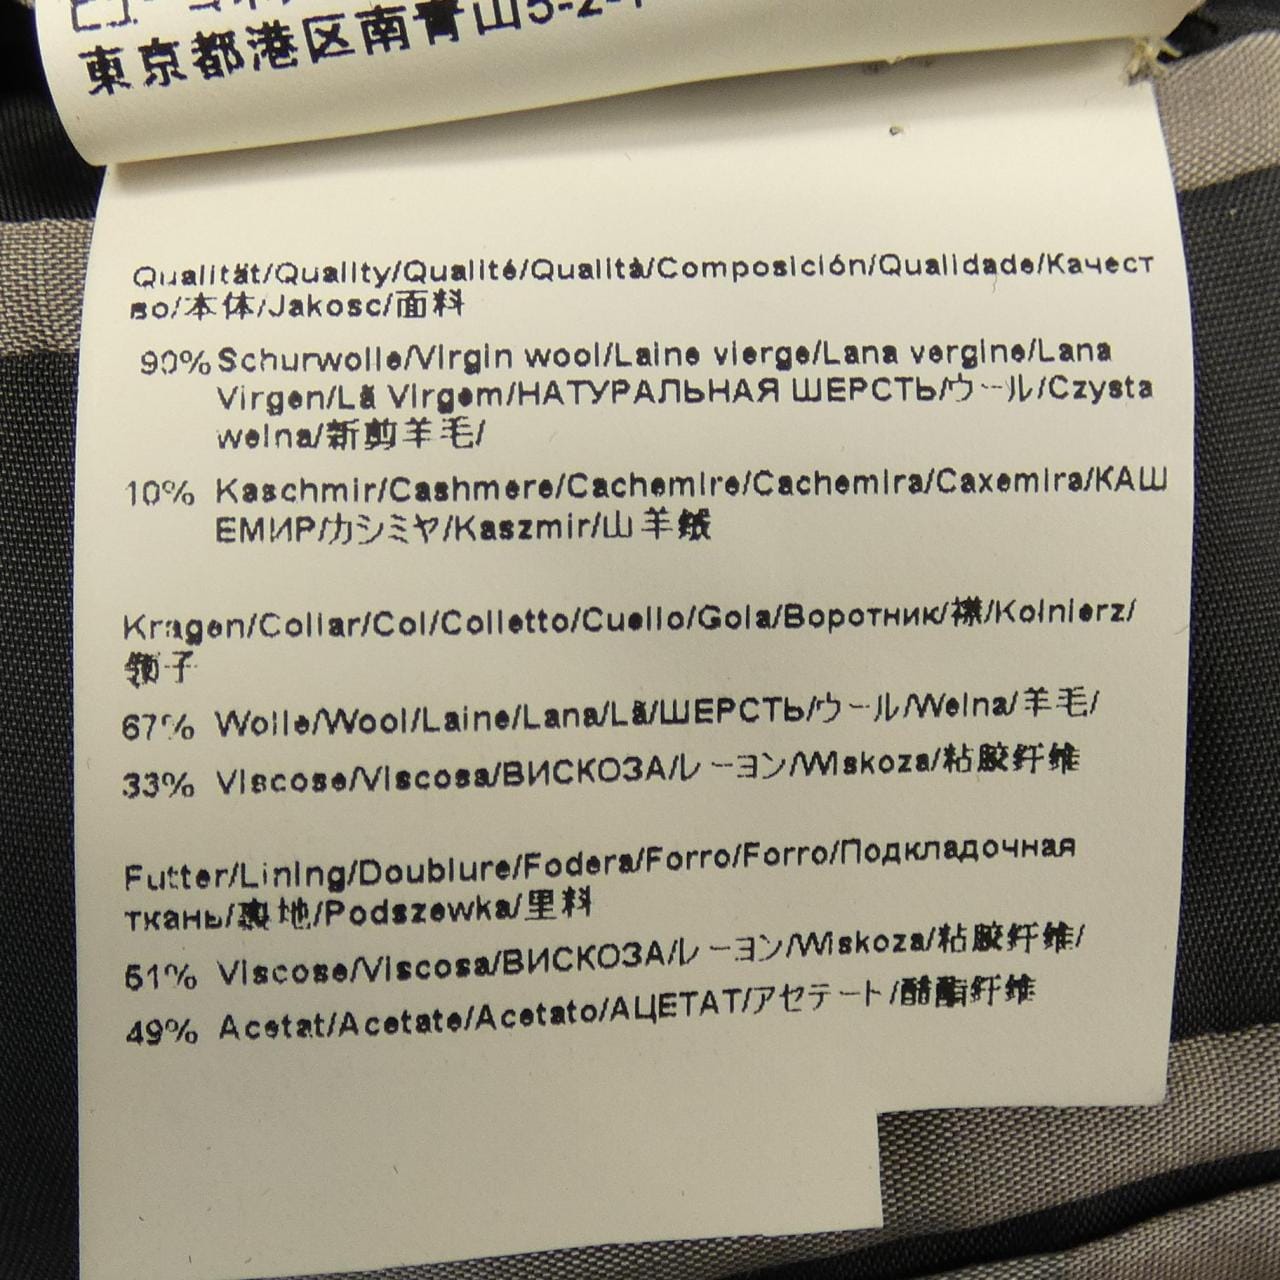 東京都港区南青山5-2-1
Qualität/Quality/Qualité/Qualità/Composición/Qualidade/Качест
во/本体/Jakosc/面料
90% Schurwolle/Virgin wool/Laine vierge/Lana vergine/Lana
Virgen/Lã Virgem/НАТУРАЛЬНАЯ ШЕРСТЬ/ウール/Czysta
welna/新剪羊毛/
10% Kaschmir/Cashmere/Cachemire/Cachemira/Caxemira/КАШ
ЕМИР/カシミヤ/Kaszmir/山羊绒
Kragen/Collar/Col/Colletto/Cuello/Gola/Воротник/襟/Kolnierz/
领子
67% Wolle/Wool/Laine/Lana/Lã/ШЕРСТЬ/ウール/Welna/羊毛/
33% Viscose/Viscosa/ВИСКОЗА/レーヨン/Wiskoza/粘胶纤维
Futter/Lining/Doublure/Fodera/Forro/Forro/Подкладочная
ткань/裏地/Podszewka/里料
51% Viscose/Viscosa/ВИСКОЗА/レーヨン/Wiskoza/粘胶纤维/
49% Acetat/Acetate/Acetato/АЦЕТАТ/アセテート/醋酯纤维